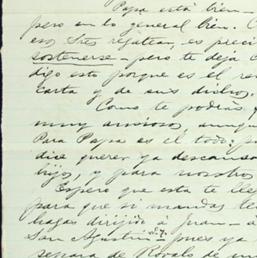 Papa está bien—
pero en lo general bien.
eso Tres regatean, es preci
sostenerse—pero te deja
digo esto porque es el re
carta y de sus dichos.
Como te podrás
muy ansioso, aunqu
Para Papa es el todo
dice querer ya descansa
hijo, y para nosotro
Espero que esta te lle
para que si mandas te
hagas dirigido á Juan—á
San Agustin—pues ya
de un